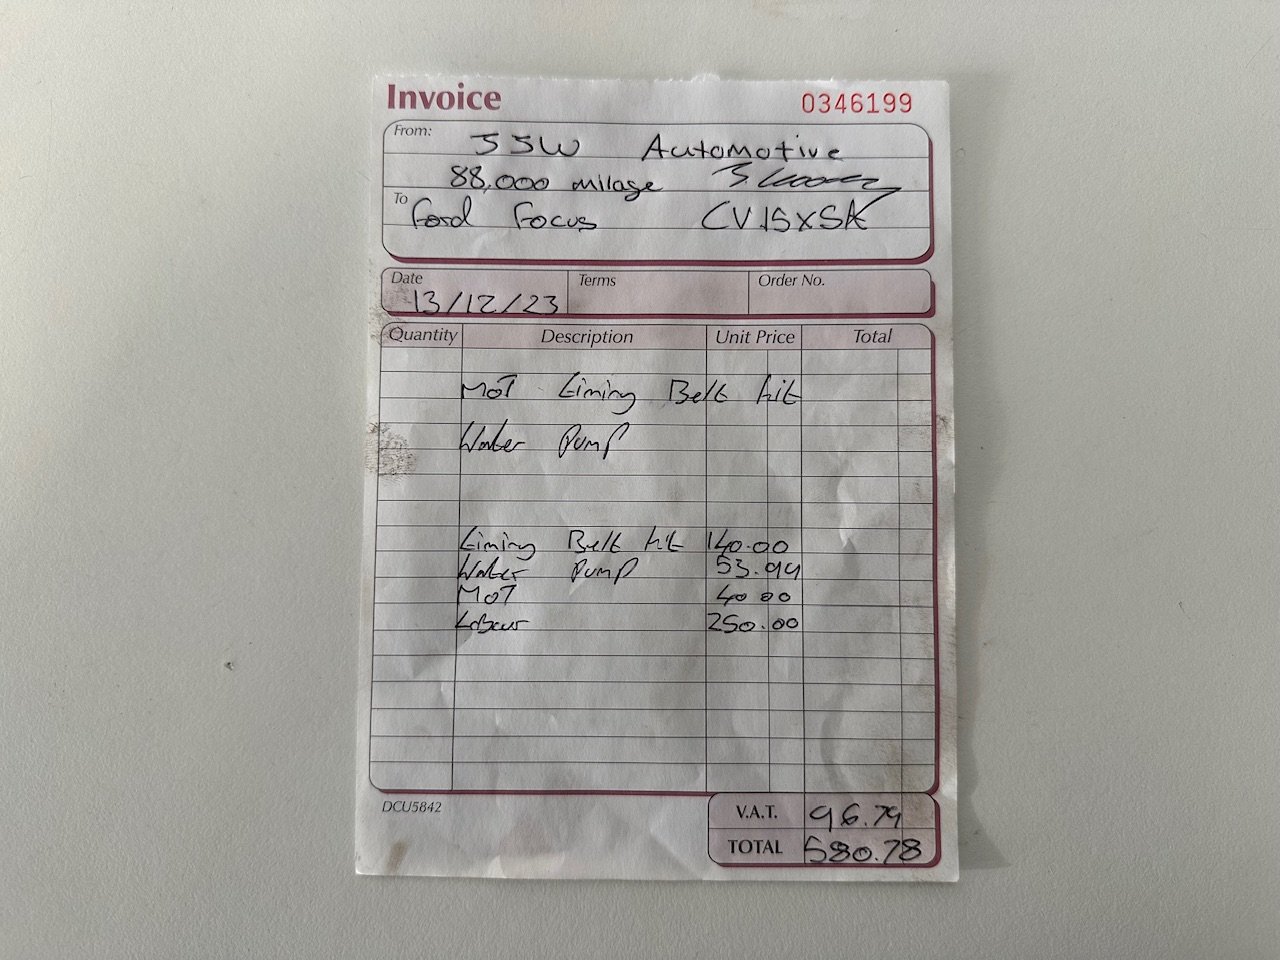 Invoice 0346199
From: JJW Automotive
88,000 milage
To Ford Focus CV15XSA
Date Terms Order No.
13/12/23
Quantity Description Unit Price Total
MOT Timing Belt kit
Water Pump
Timing Belt kit 140.00
Water Pump 53.99
MOT 40.00
Labour 250.00
DCU5842
V.A.T. 96.79
TOTAL 580.78